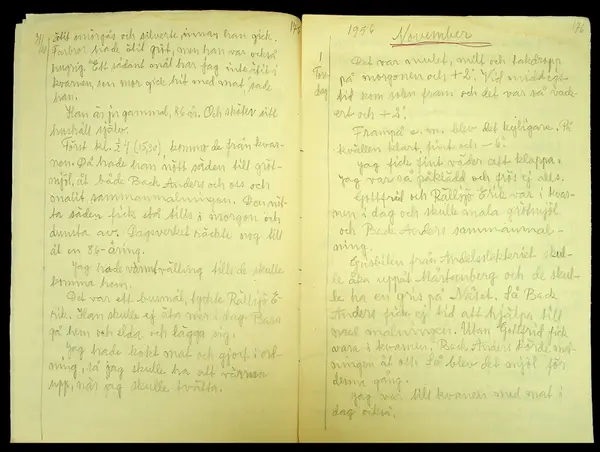 31/10 ätit smörgås och silverte, innan han gick. 175
Farbror hade ätit gröt, men han var också
hugrig. Ett sådant mål har jag inte ätit i
kvarnen, sen mor gick hit med mat, sade
han.
Han är ju gammal, 86 år. Och sköter sitt
hushåll själv.
Först kl. ½ 4 (15,30), kommo de från kvar-
nen. Då hade han nött säden till gröt-
mjöl, åt både Back Anders och oss och
malit sammanmalningen. Den nöt-
ta säden fick stå tills i morgon och
dunsta av. Dagsverket räckte nog till
åt en 86-åring.
Jag hade välling till de skulle
komma hem.
Det var ett busmål, tyckte Rälljö E-
rik. Han skulle ej äta mer i dag. Bara
gå hem och elda, och lägga sig.
Jag hade kokt mat och gjort i ord-
ning, så jag skulle ha att värma
upp, när jag skulle tvätta.
1956 November 176
1 Det var mulet, milt och takdropp
Tors- på morgonen och +2°. Vid middags-
dag tid kom solen fram och det var så vack-
ert och +2°.
Frampå e.m. blev det kyligare. På
kvällen klart, fint och -6°.
Jag fick fint väder att klappa.
Jag var så påklädd och frös ej alls.
Gottfrid och Rälljö Erik var i kvar-
nen i dag och skulle mala grötmjöl
och Back Anders sammanmal-
ning.
Grisbilen från Andelsslakteriet skul-
le åka uppåt Mårtenberg och de skul-
le ha en gris på Nästet. Så Back
Anders fick ej tid att hjälpa till
med malningen. Utan Gottfrid fick
vara i kvarnen. Back Anders körde mal-
ningen åt oss. Så blev det mjöl för
denna gång.
Jag var till kvarnen med mat i
dag också.